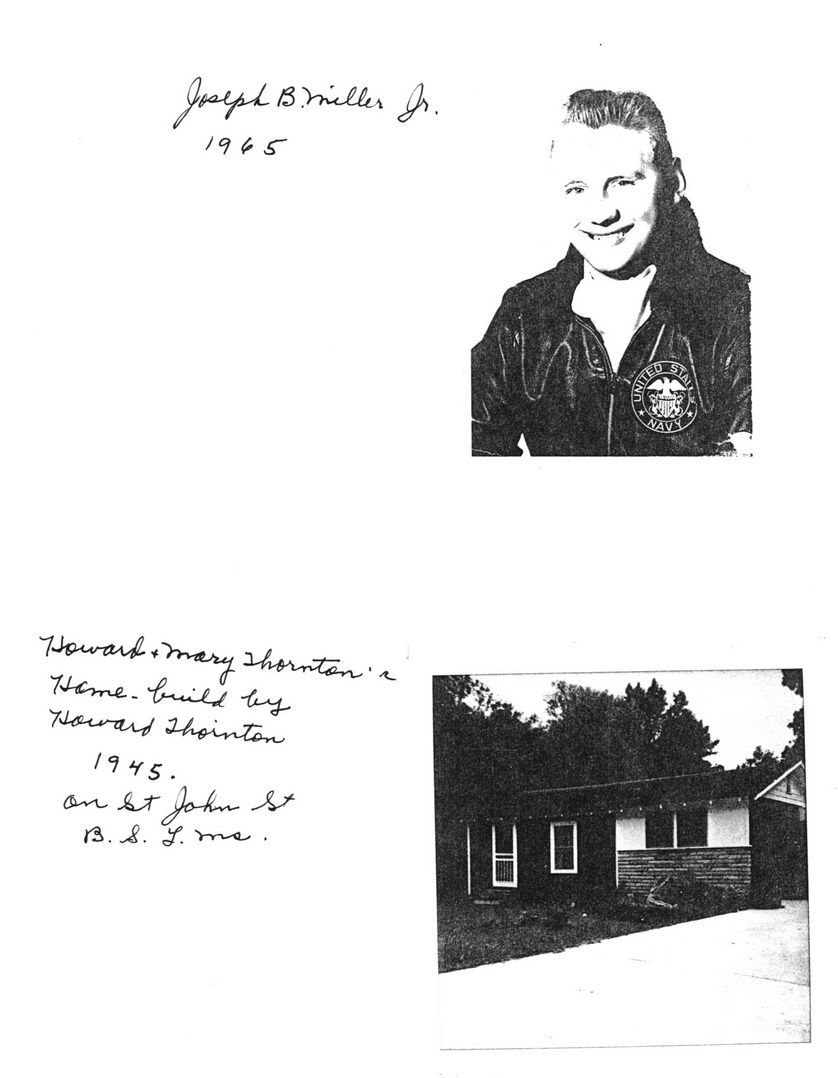 Joseph B. Miller Jr.
1965
UNITED STA
NAVY
Howard + Mary Thornton's
Home - build by
Howard Thornton
1945.
on St John St
B. S. L. Ms.